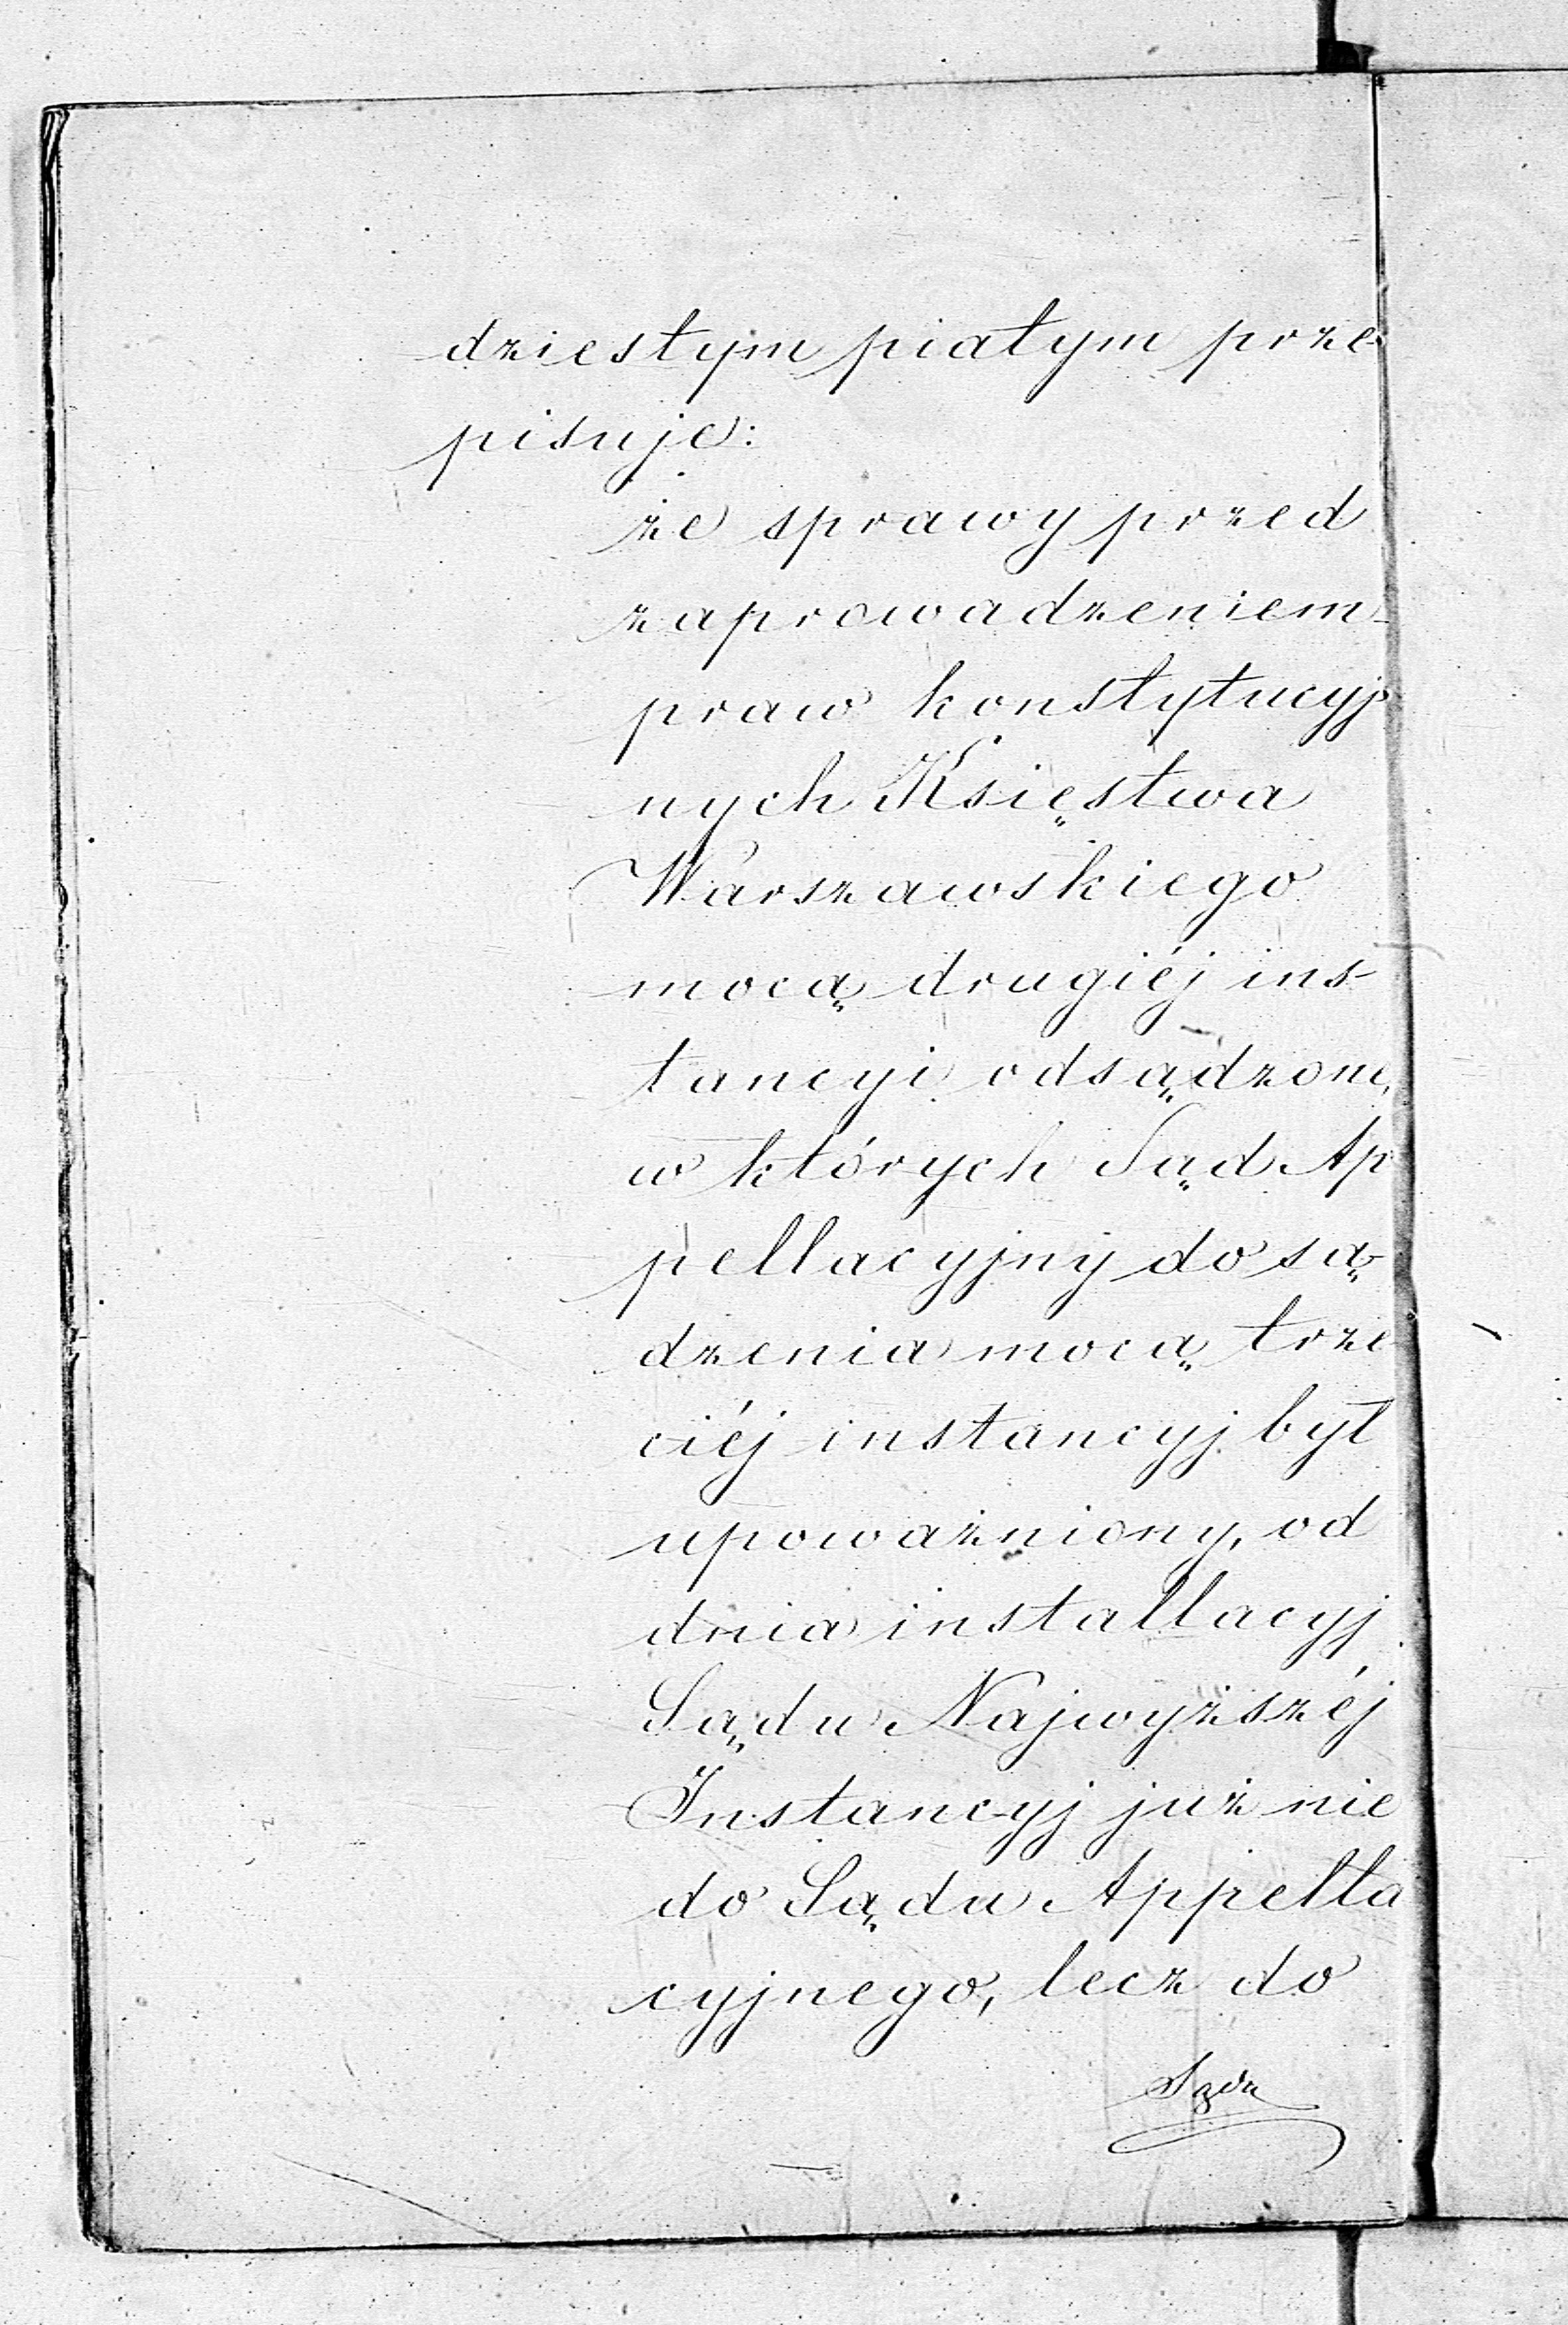 dziestym piatym prze-
pisuje:
że sprawy przed
zaprowadzeniem
praw konstytucyj
nych Księstwa
Warszawskiego
mocą drugiéj ins-
tancyi odsądzone,
w których Sąd Ap
pellacyjny do są-
dzenia mocą trze
ciéj instancyj był
upoważniony, od
dnia installacyj
Sądu Najwyższéj
Instancyj już nie
do Sądu Appella
cyjnego, lecz do
Sądu